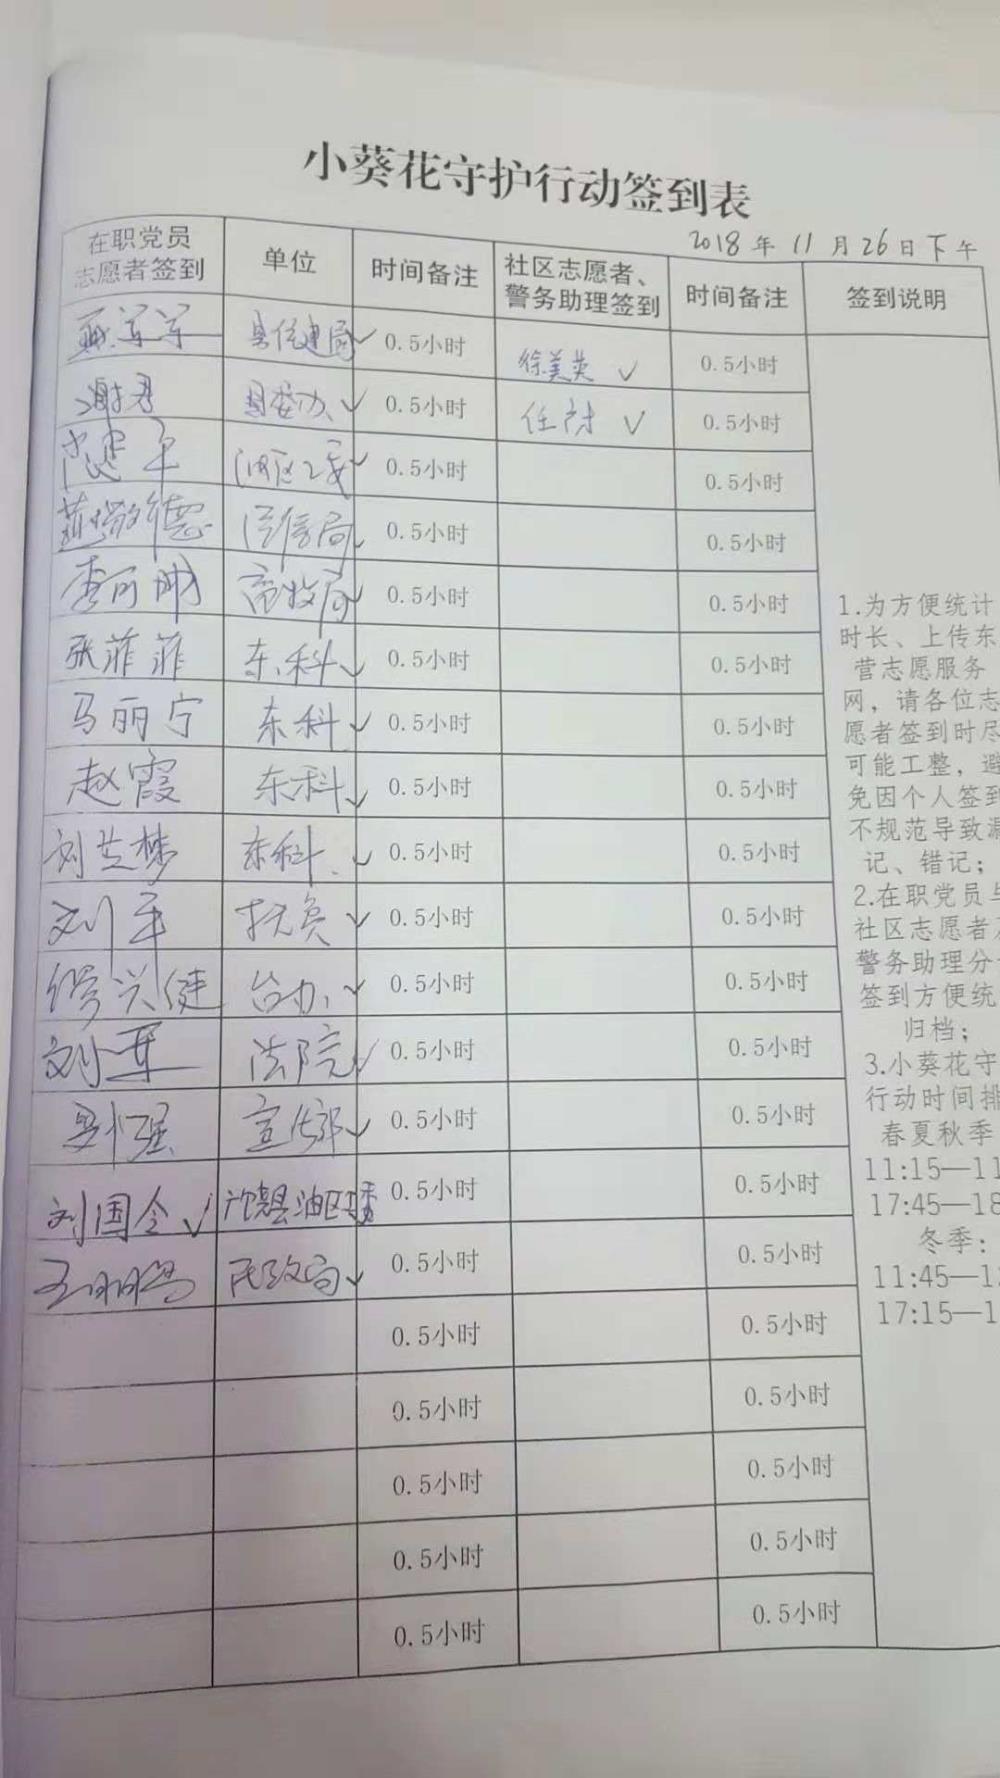 小葵花守护行动签到表
2018年11月26日下午
在职党员
志愿者签到
单位
时间备注
社区志愿者、
警务助理签到
时间备注
签到说明
县住建局✓ 0.5小时 徐美英 ✓ 0.5小时
谢君 县委办✓ 0.5小时 任 ✓ 0.5小时
0.5小时 0.5小时
局✓ 0.5小时 0.5小时
李 畜牧局✓ 0.5小时 0.5小时
张菲菲 东科✓ 0.5小时 0.5小时
马丽宁 东科✓ 0.5小时 0.5小时
赵霞 东科✓ 0.5小时 0.5小时
刘芝梦 东科✓ 0.5小时 0.5小时
刘军 扶贫✓ 0.5小时 0.5小时
徐兴健 台办✓ 0.5小时 0.5小时
刘 法院✓ 0.5小时 0.5小时
强 宣传部✓ 0.5小时 0.5小时
刘国令✓ 油区 0.5小时 0.5小时
王 民政局✓ 0.5小时 0.5小时
0.5小时 0.5小时
0.5小时 0.5小时
0.5小时 0.5小时
0.5小时 0.5小时
0.5小时 0.5小时
1.为方便统计
时长、上传东
营志愿服务
网，请各位志
愿者签到时尽
可能工整，避
免因个人签到
不规范导致漏
记、错记；
2.在职党员与
社区志愿者
警务助理分
签到方便统
归档；
3.小葵花守
行动时间排
春夏秋季
11:15—11
17:45—18
冬季：
11:45—1
17:15—1